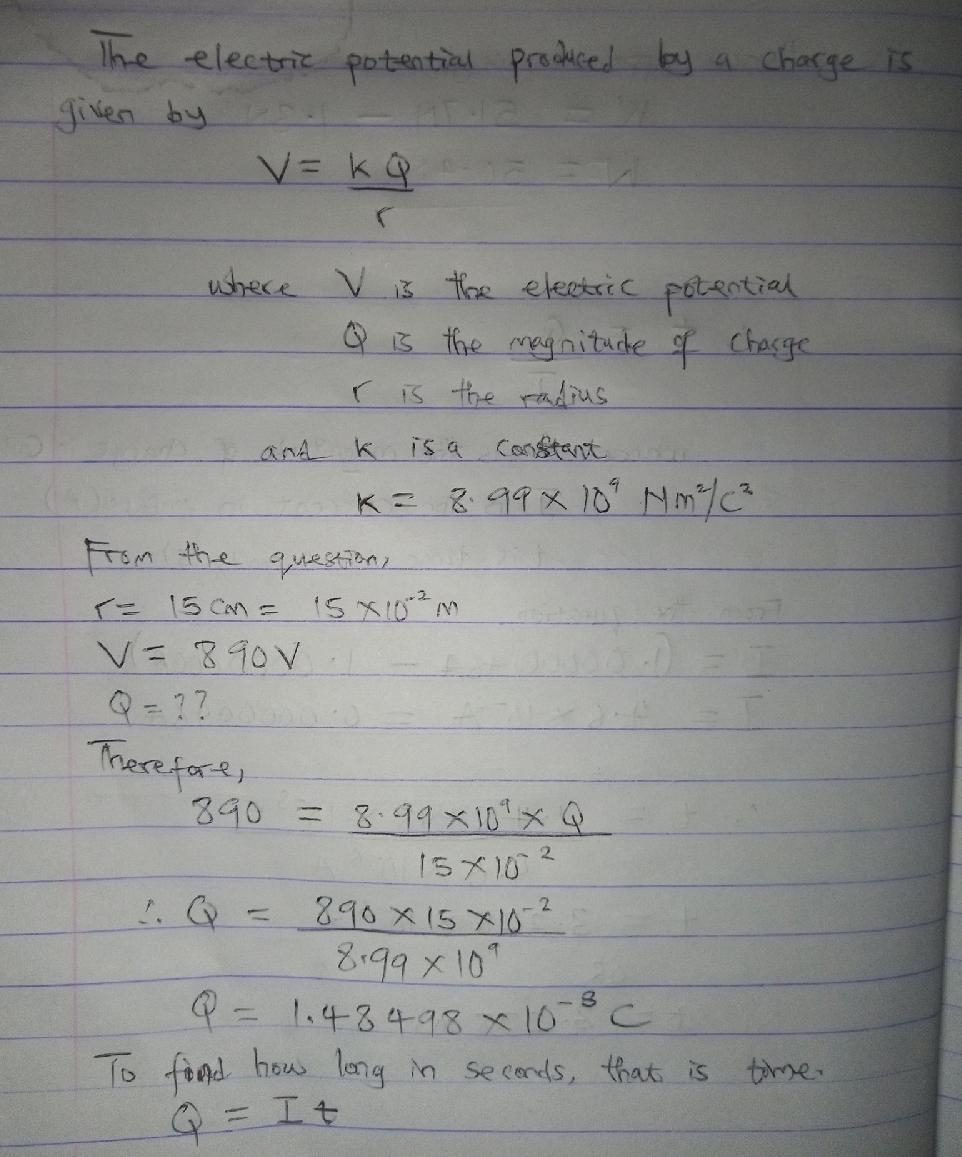 The electric potential produced by a charge is
given by
V = kQ
r
where V is the electric potential
Q is the magnitude of charge
r is the radius
and k is a constant
K = 8.99 × 10⁹ Nm²/C²
From the question,
r = 15 cm = 15 × 10⁻² m
V = 890 V
Q = ??
Therefore,
890 = 8.99 × 10⁹ × Q
15 × 10⁻²
∴ Q = 890 × 15 × 10⁻²
8.99 × 10⁹
Q = 1.48498 × 10⁻⁸ C
To find how long in seconds, that is time.
Q = It